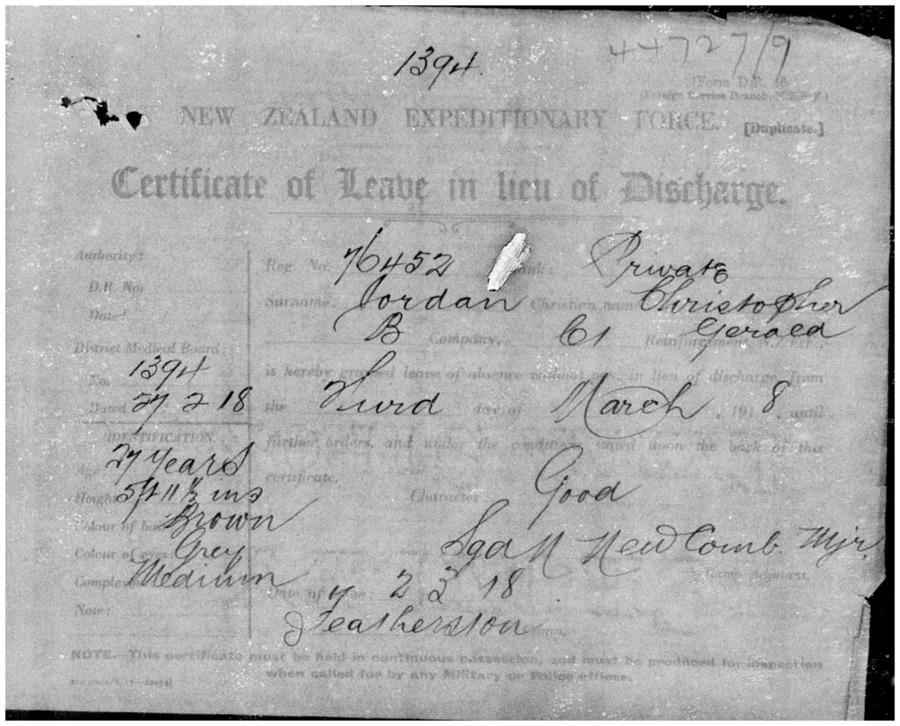 1394.
44727/9
(Form D.R.
(Foreign Service Branch, N.Z.E.F.)
NEW ZEALAND EXPEDITIONARY FORCE. [Duplicate.]
Certificate of Leave in lieu of Discharge.
Authority:
D.R. No.
Dated
District Medical Board:
No. 1394
Dated 27 2 18
IDENTIFICATION.
Age 27 years
Height 5ft 11½ ins
Colour of hair Brown
Colour of eyes Grey
Complexion Medium
Note:
Reg. No. 76452 Rank: Private
Surname: Jordan Christian name Christopher
Gerald
B Company, Reinforcement, N.Z.E.F.,
is hereby granted leave of absence without pay, in lieu of discharge, from
the Third day of March, 1918, until
further orders, and under the conditions stated upon the back of this
certificate.
Character: Good
Sgd N NewComb Mjr.
Camp Adjutant.
Date of issue: 2 3 18
Featherston
NOTE.—This certificate must be held in continuous possession, and must be produced for inspection
when called for by any Military or Police officer.